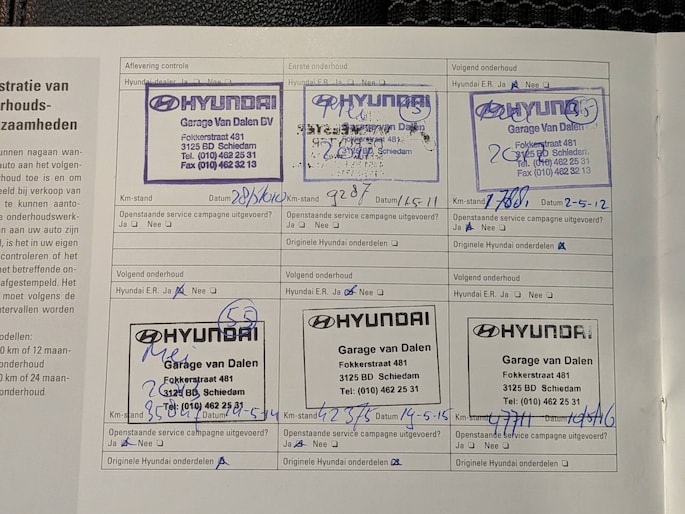 stratie van
rhouds-
zaamheden
unnen nagaan wan-
auto aan het volgen-
rhoud toe is en om
eeld bij verkoop van
te kunnen aanto-
e onderhoudswerk-
en aan uw auto zijn
l, is het in uw eigen
controleren of het
net betreffende on-
afgestempeld. Het
moet volgens de
ntervallen worden
odellen:
0 km of 12 maan-
onderhoud
0 km of 24 maan-
onderhoud
Aflevering controle
Hyundai-dealer Ja Nee
HYUNDAI
Garage Van Dalen BV
Fokkerstraat 481
3125 BD Schiedam
Tel. (010) 462 25 31
Fax (010) 462 32 13
Km-stand Datum
Openstaande service campagne uitgevoerd?
Ja Nee
Eerste onderhoud
Hyundai E.R. Ja Nee
HYUNDAI
Garage Van Dalen
Schiedam
Km-stand 9287 Datum 11-5-11
Originele Hyundai onderdelen
Volgend onderhoud
Hyundai E.R. Ja Nee
HYUNDAI
Garage Van Dalen
Fokkerstraat 481
3125 BD Schiedam
Tel. (010) 462 25 31
Fax (010) 462 32 13
Km-stand Datum 2-5-12
Openstaande service campagne uitgevoerd?
Ja Nee
Originele Hyundai onderdelen
Volgend onderhoud
Hyundai E.R. Ja Nee
55
HYUNDAI
Mei
Garage van Dalen
Fokkerstraat 481
3125 BD Schiedam
Tel: (010) 462 25 31
Km-stand Datum
Openstaande service campagne uitgevoerd?
Ja Nee
Originele Hyundai onderdelen
Volgend onderhoud
Hyundai E.R. Ja Nee
HYUNDAI
Garage van Dalen
Fokkerstraat 481
3125 BD Schiedam
Tel: (010) 462 25 31
Km-stand 42375 Datum 19-5-15
Openstaande service campagne uitgevoerd?
Ja Nee
Originele Hyundai onderdelen
Volgend onderhoud
Hyundai E.R. Ja Nee
HYUNDAI
Garage van Dalen
Fokkerstraat 481
3125 BD Schiedam
Tel: (010) 462 25 31
Km-stand 47711 Datum
Openstaande service campagne uitgevoerd?
Ja Nee
Originele Hyundai onderdelen